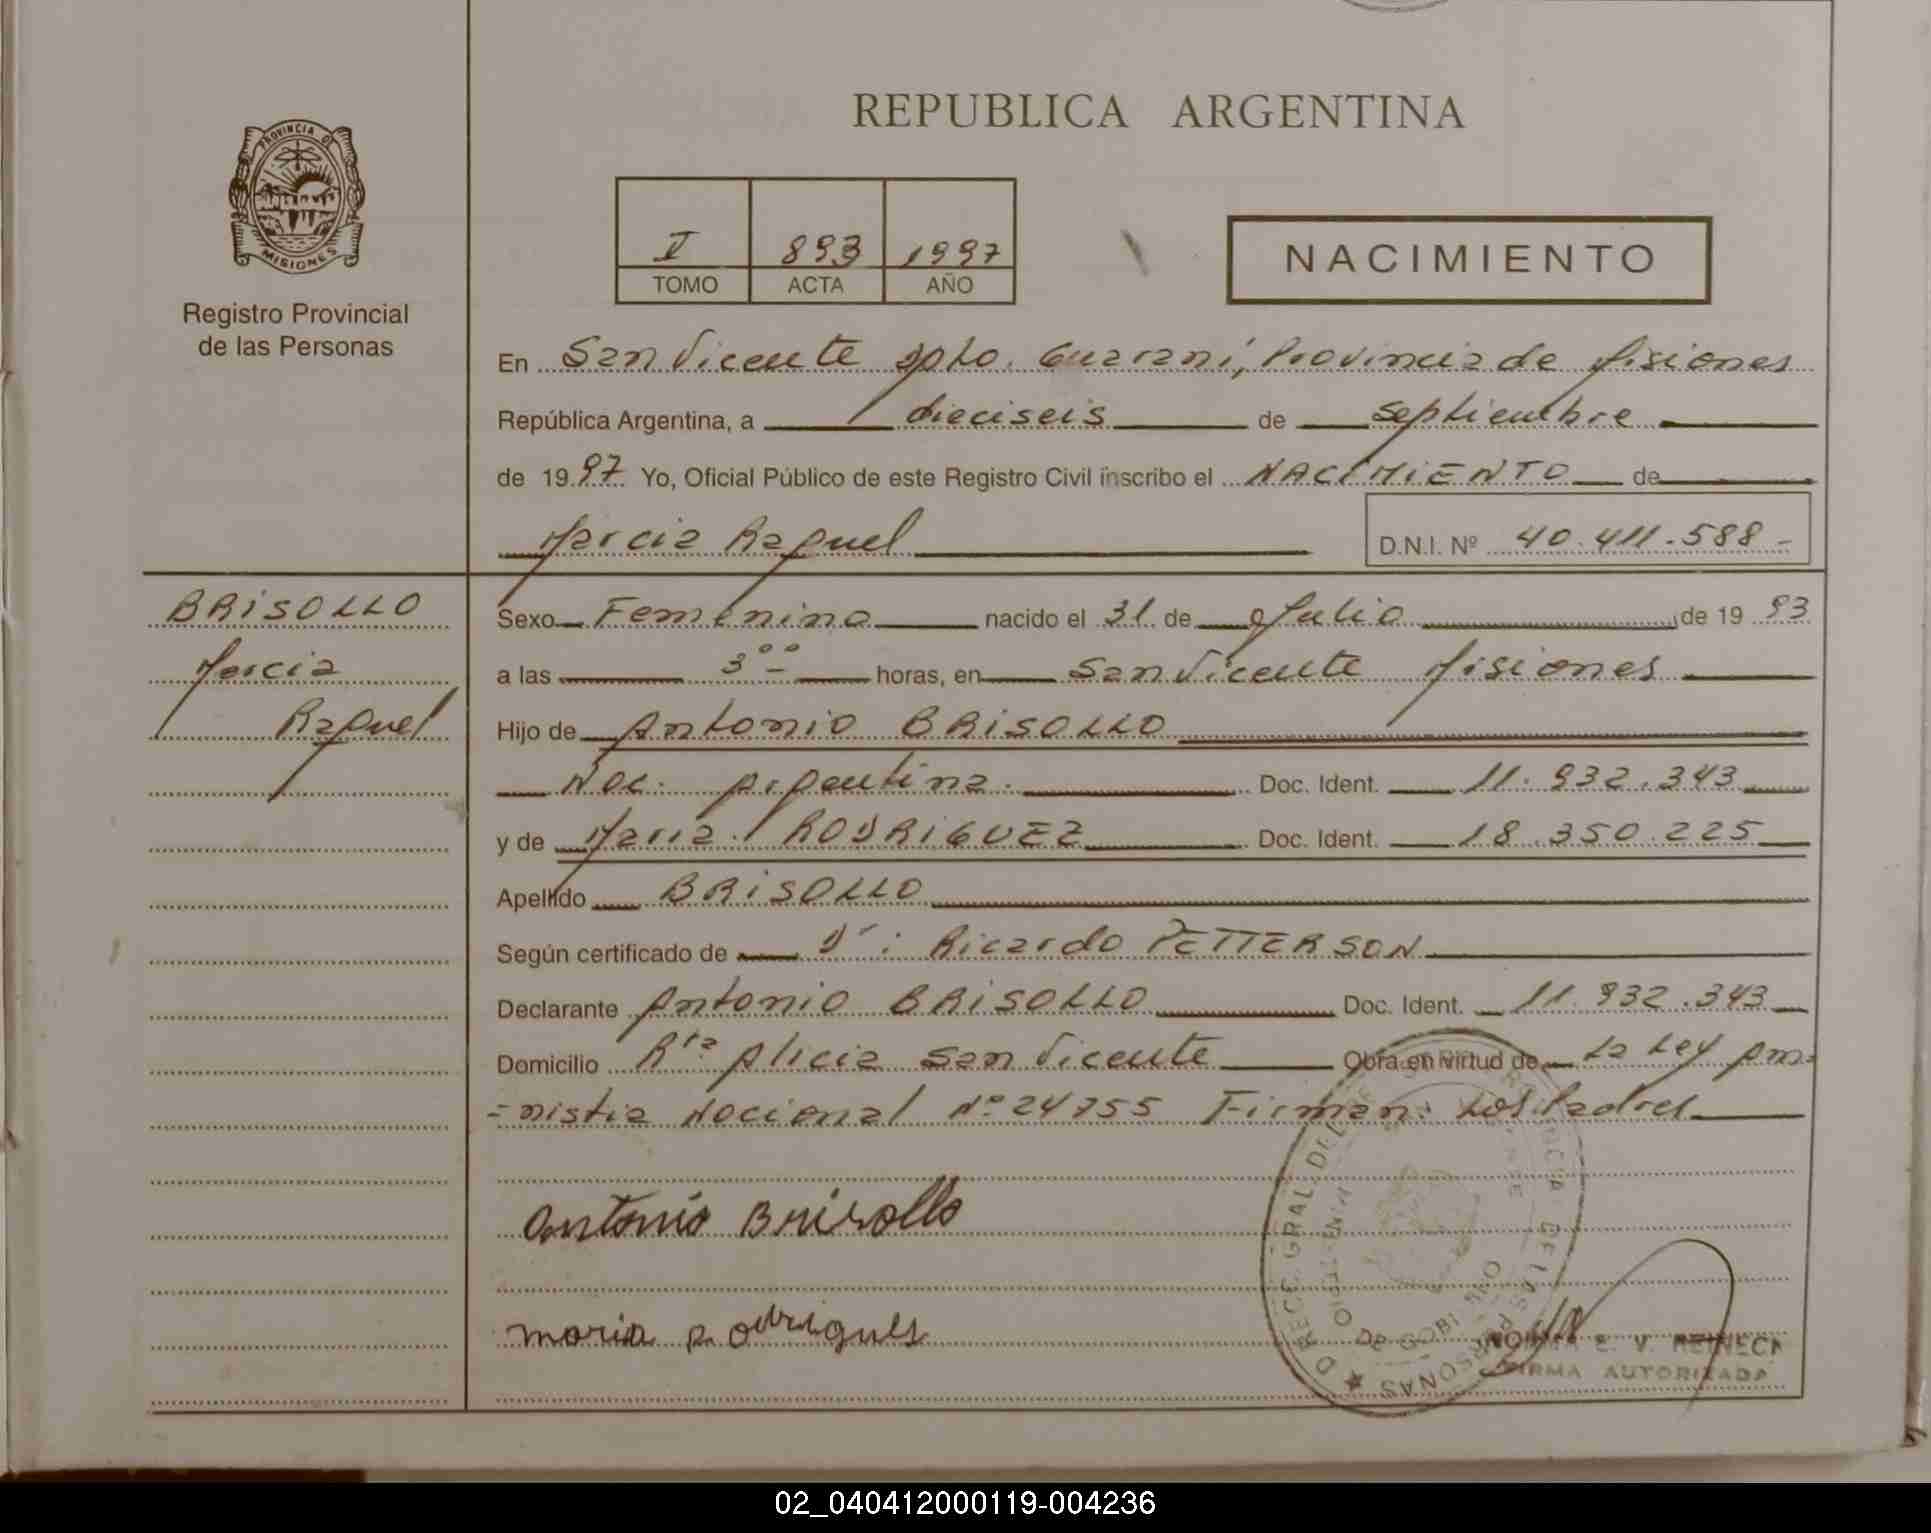 REPUBLICA ARGENTINA
PROVINCIA DE
MISIONES
Registro Provincial
de las Personas
I 893 1997
TOMO ACTA AÑO
NACIMIENTO
En San Vicente Dpto. Guaraní, Provincia de Misiones
República Argentina, a dieciseis de Septiembre
de 1997 Yo, Oficial Público de este Registro Civil inscribo el NACIMIENTO de
Marcia Raquel D.N.I. Nº 40.411.588-
BRISOLLO
Marcia
Raquel
Sexo Femenino nacido el 31 de Julio de 1993
a las 3°° horas, en San Vicente Misiones
Hijo de Antonio BRISOLLO
Nac. Argentina. Doc. Ident. 11.932.343
y de Maria RODRIGUEZ Doc. Ident. 18.350.225
Apellido BRISOLLO
Según certificado de Dr: Ricardo PETTERSON
Declarante Antonio BRISOLLO Doc. Ident. 11.932.343
Domicilio Alicia San Vicente Obra en Virtud de La Ley Am=
=nistia Nacional Nº 24755 Firman: Los Padres
Antonio Brisollo
maria rodrigues
E. V. REINECK
FIRMA AUTORIZADA
02_040412000119-004236